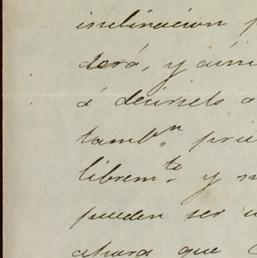 inclinacion p
derá, y aún
á decirselo a
tambn. pri
libremte. y n
pueden ser u
ahora que